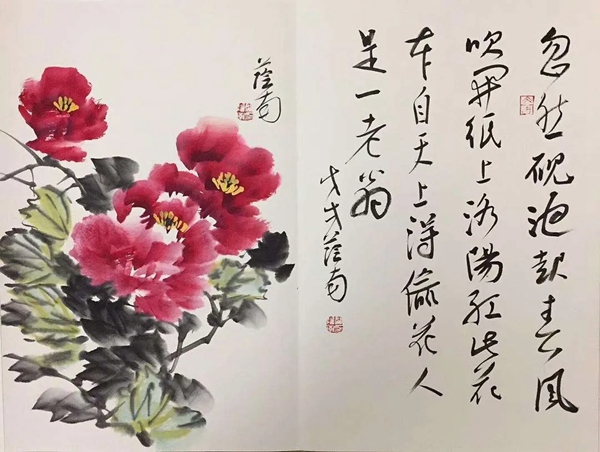 忽然硯池起春風
吹開紙上洛陽紅此花
本自天上得偷花人
是一老翁
戊戌蔭南
蔭南